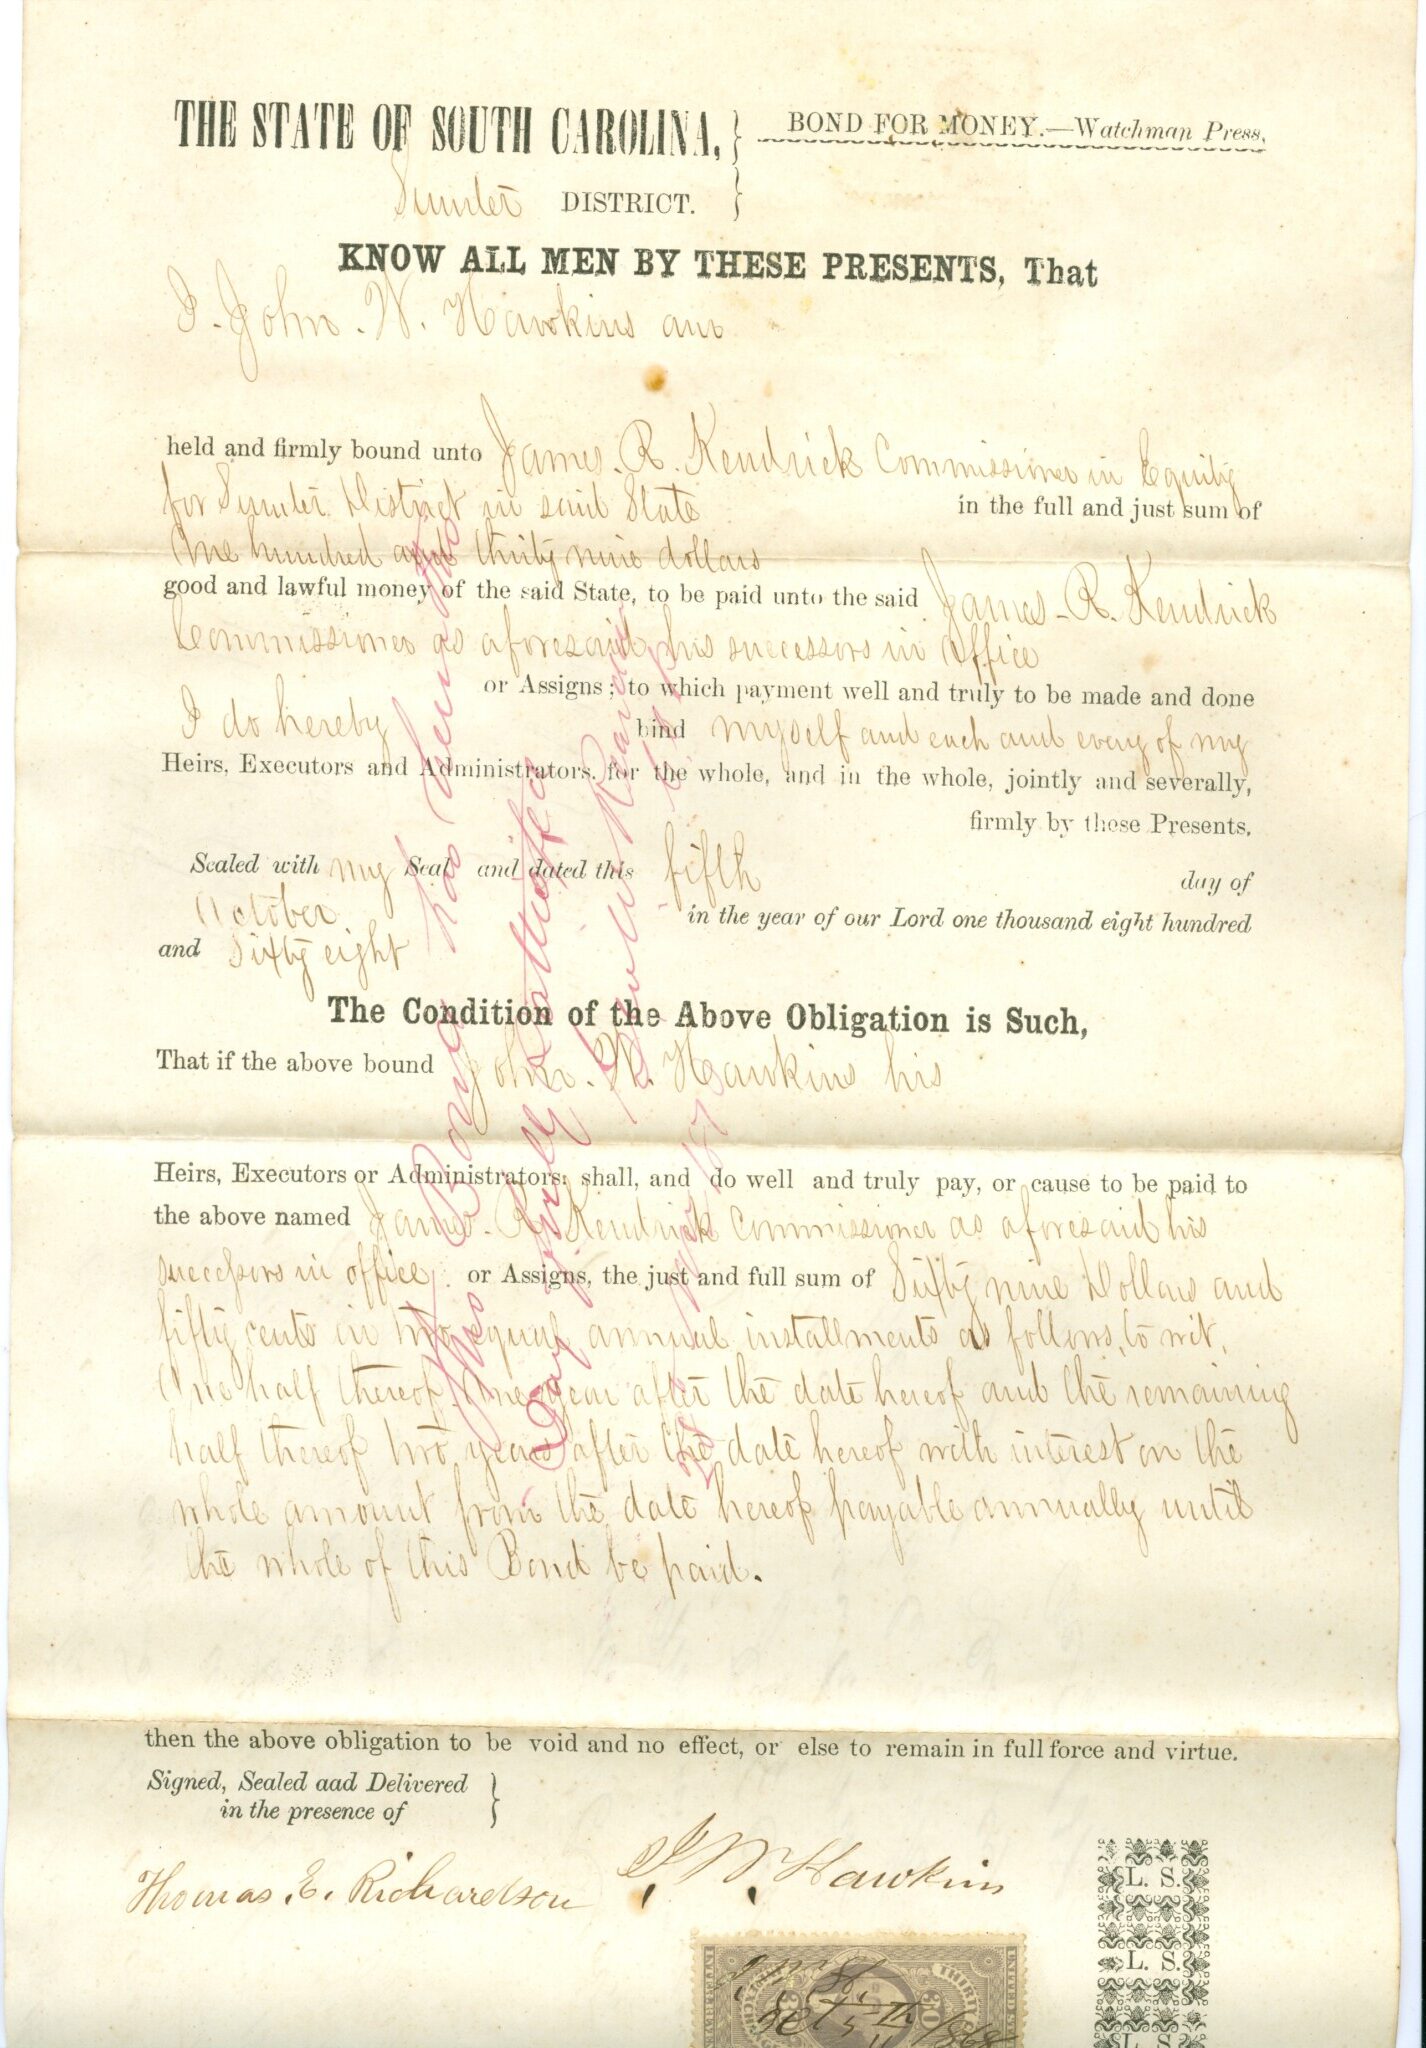 THE STATE OF SOUTH CAROLINA, } BOND FOR MONEY.—Watchman Press.
Sumter DISTRICT. }
KNOW ALL MEN BY THESE PRESENTS, That
I. John. W. Hawkins am
held and firmly bound unto James. R. Kendrick Commissioner in Equity
for Sumter District in said State in the full and just sum of
One hundred and thirty nine dollars
good and lawful money of the said State, to be paid unto the said James. R. Kendrick
Commissioner as aforesaid his successors in office
or Assigns; to which payment well and truly to be made and done
I do hereby bind myself and each and every of my
Heirs, Executors and Administrators, for the whole, and in the whole, jointly and severally,
firmly by these Presents.
Sealed with my Seal and dated this fifth day of
October in the year of our Lord one thousand eight hundred
and Sixty eight
The Condition of the Above Obligation is Such,
That if the above bound John. W. Hawkins his
Heirs, Executors or Administrators: shall, and do well and truly pay, or cause to be paid to
the above named James. R. Kendrick Commissioner as aforesaid his
successors in office, or Assigns, the just and full sum of Sixty nine Dollars and
fifty cents in two equal annual installments as follows, to wit,
One half thereof One year after the date hereof and the remaining
half thereof two years after the date hereof with interest on the
whole amount from the date hereof payable annually until
the whole of this Bond be paid.
then the above obligation to be void and no effect, or else to remain in full force and virtue.
Signed, Sealed aad Delivered }
in the presence of
Thomas. E. Richardson J. W. Hawkins
L. S.
L. S.
L. S.
THIRTY
30
Oct 5th
1868
This Bond has been
Day fully satisfied